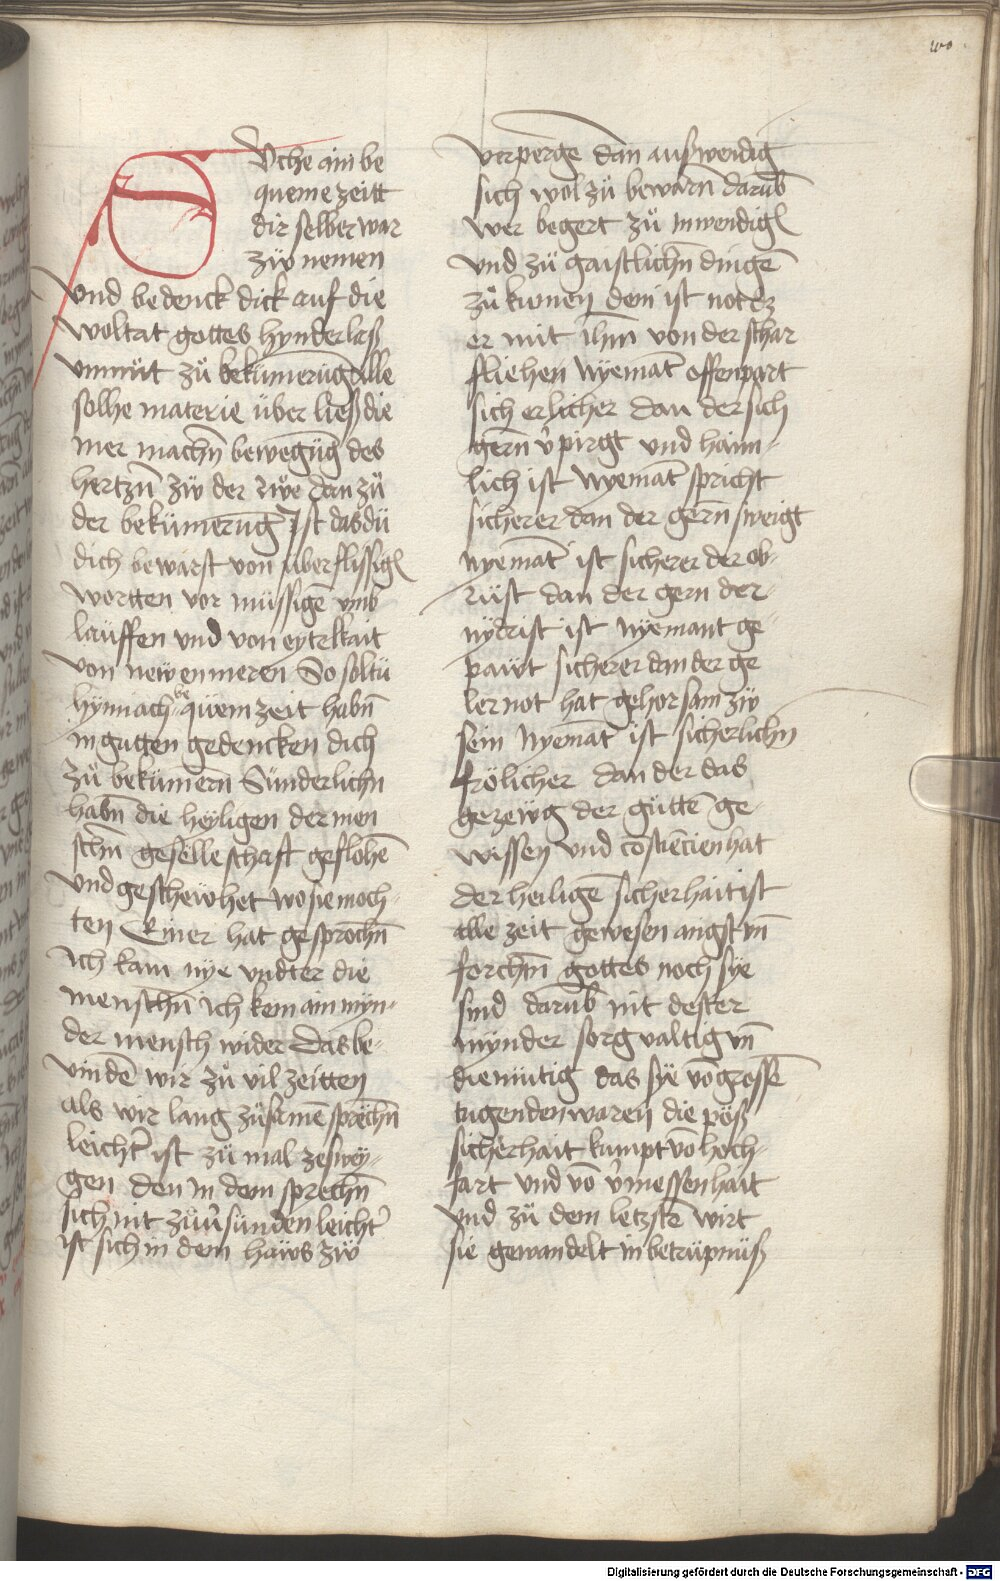 100
SVche ain be
queme zeitt
dir selber war
zw nemen
vnd bedenck dick auf die
woltat gottes hynder laß
vnnüt zů bekümerūg Alle
solhe materie über ließ die
mer machn̄ bewegūg des
hertzn̄ zw der rẅe dan zů
der bekümerūg Ist das dü
dich bewarst von überflissigͤ
wortten vor müssigē vmb
lauffen vnd von eytelkait
von newen meren So soltu
hyniach beqüem zeit habn̄
in gutten gedencken dich
zů bekümern Sünderlichn
habn̄ die heyligen der men
schn̄ geselleschaft geflohē
vnd geschewhet wo sie moch-
ten Einer hat gesprochn̄
ich kam nye vndter die
menschn̄ ich kem ain myn-
der mensch wider Das be-
vindē wir zů vil zeitten
als wir lang züsamē sprechn̄
leicht' ist zü mal zeswey-
gen den in dem sprechn̄
sich nit zův'sünden leicht'
ist sich in dem haẅs zw
verperge dan außwendig
sich wol zü bewarn darūb
wer begert zů inwendigͤ
vnd zü gaistlichn̄ dingē
zů kumen dem ist not dz
er mit ihm̄ von der schar
fliehen Nyemāt offenpart
sich erlicher dan der sich
gern v'pirgt vnd haim-
lich ist Nyemāt spricht
sicherer dan der gern sweigt
nyemāt ist sicherer der ob-
rüst dan der gern der
nydrist ist nyemant ge-
pawt sicherer dan der ge
lernot hat gehorsam zw
sein Nyemāt ist sicherlichn̄
frölicher dan der das
gezewg der güttē ge-
wissen vnd cōsciēcien hat
der heiligē sicherhait ist
alle zeit gewesen angst vn̄
forchtn̄ gottes noch sye
sind darūb nit dester
mynder sorgualtig vn̄
diemütig das sye vō grossē
tugenden waren die pöß
sicherhait kumpt vō hoch-
fart vnd vō v'messenhait
vnd zů dem letzstē wirt
sie gewandelt in betrüpnüß
Digitalisierung gefördert durch die Deutsche Forschungsgemeinschaft - DFG